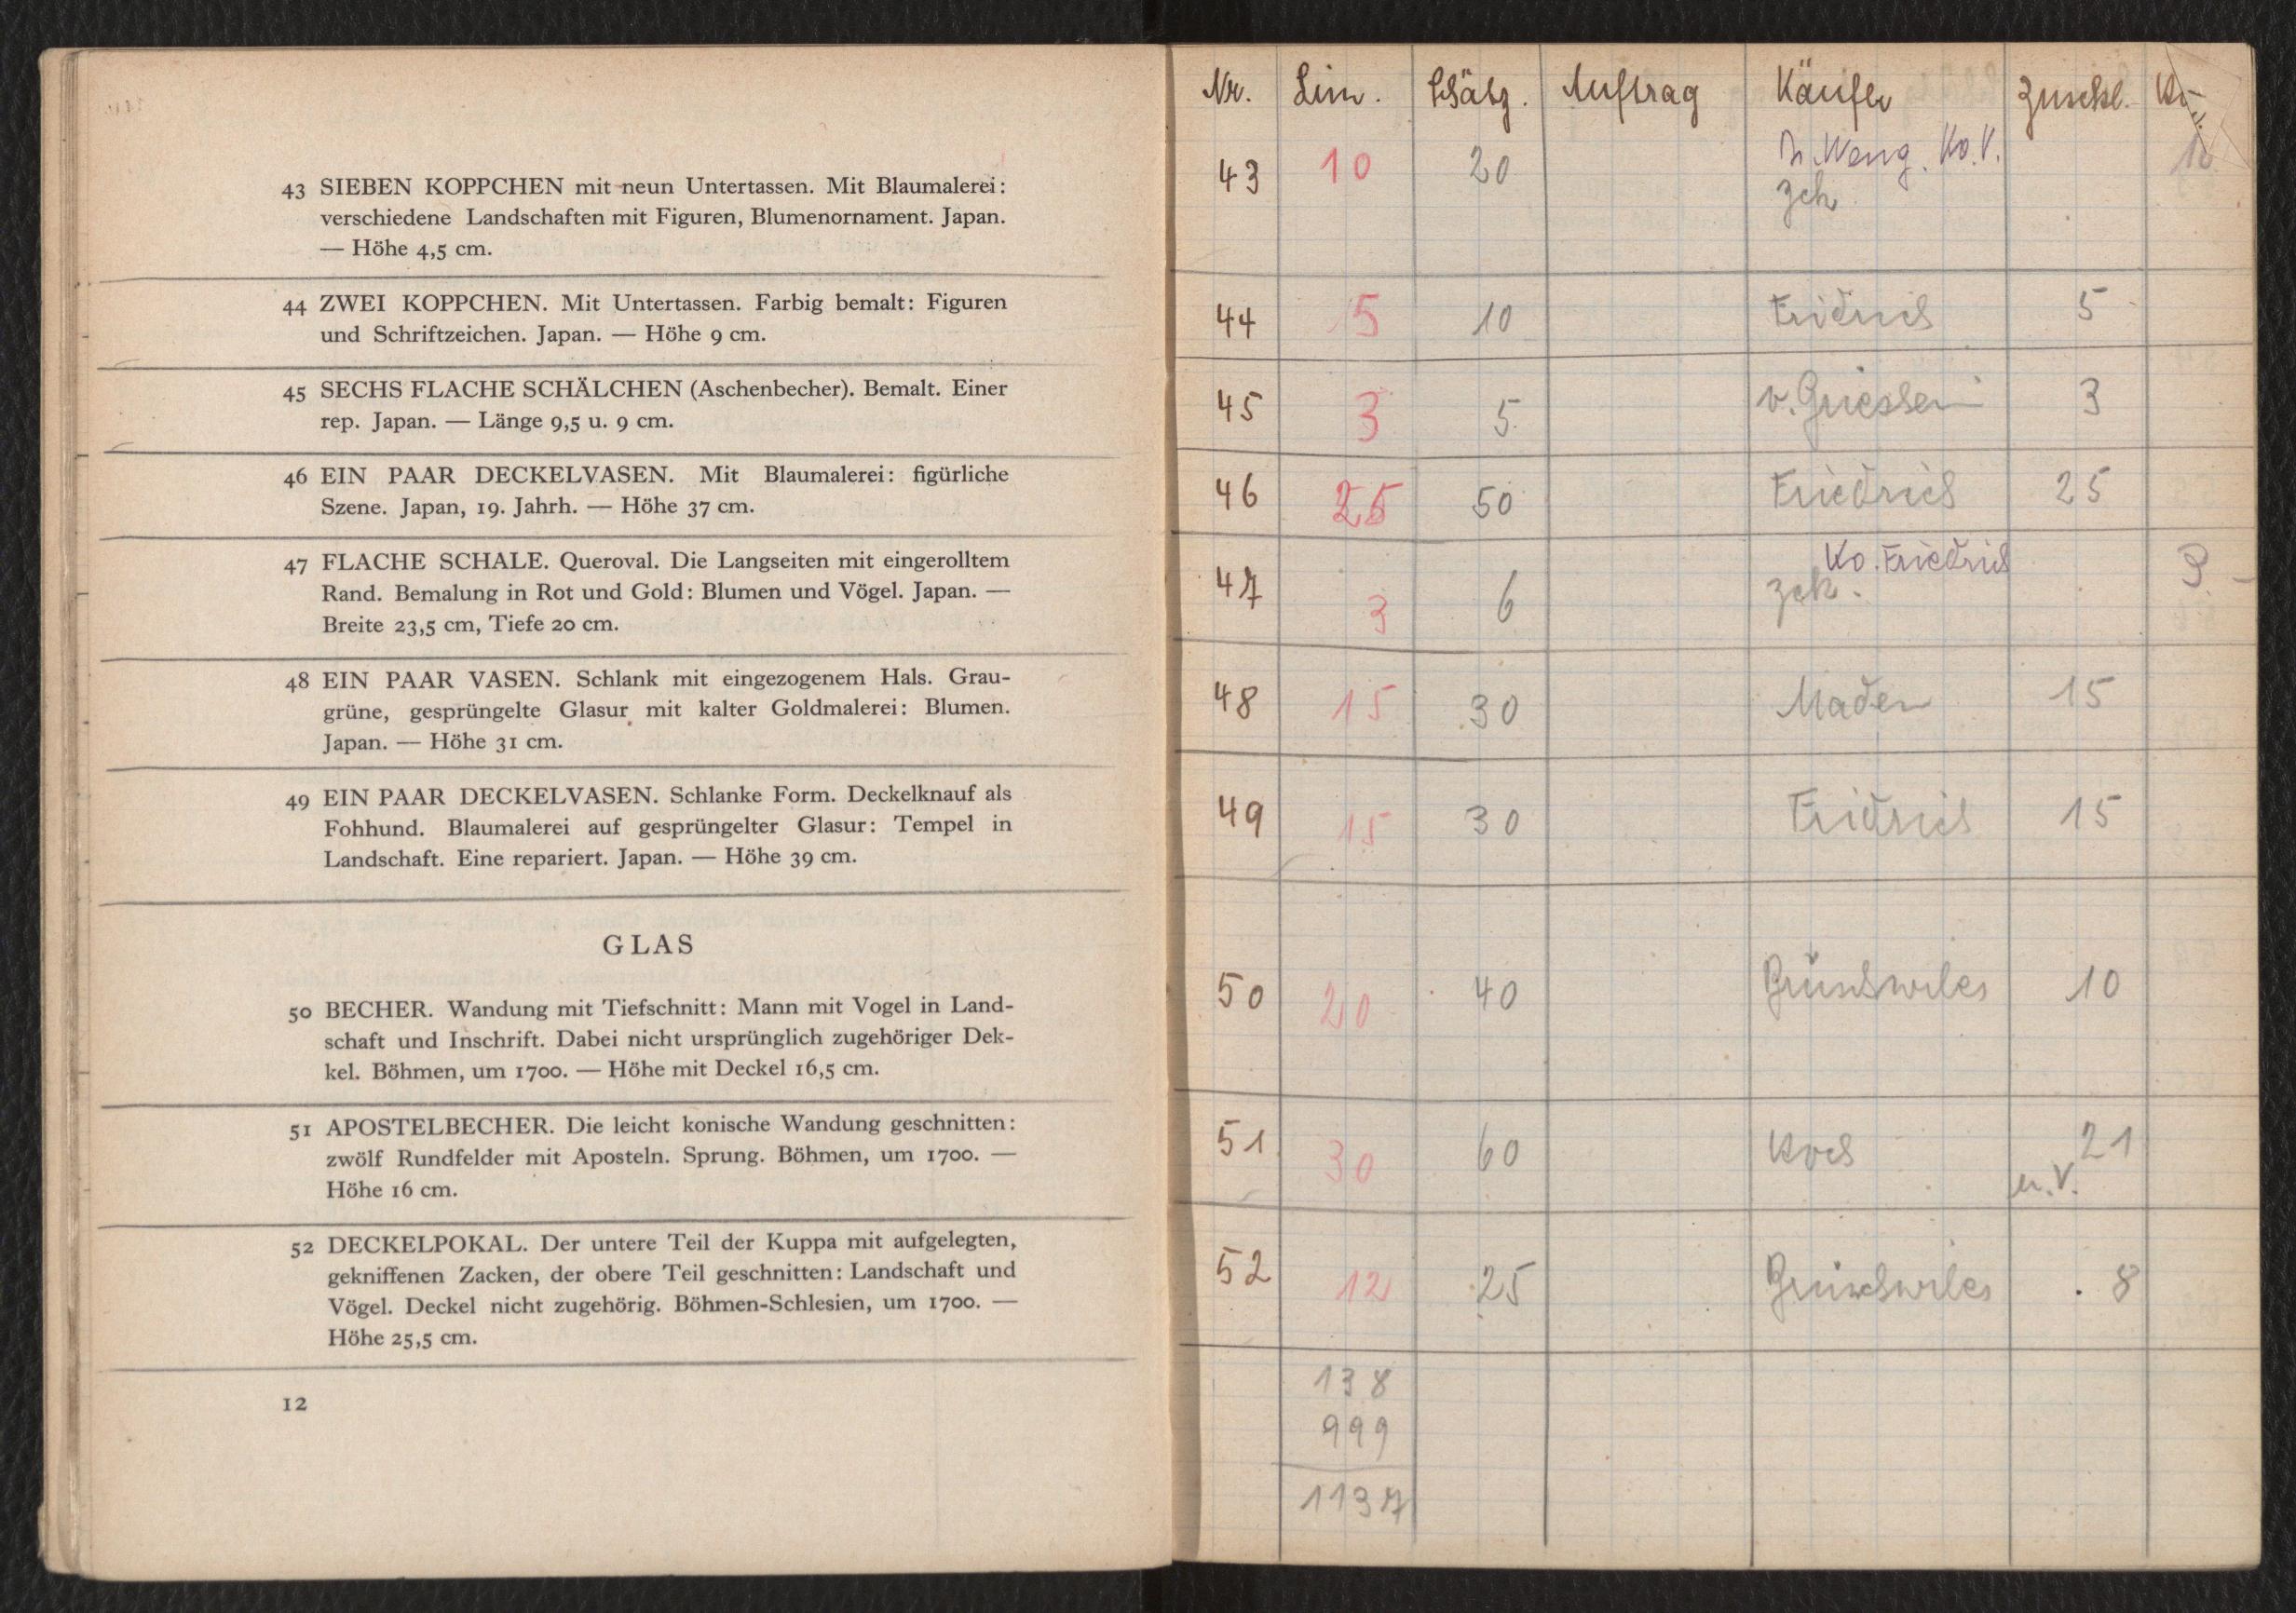 43 SIEBEN KOPPCHEN mit neun Untertassen. Mit Blaumalerei:
verschiedene Landschaften mit Figuren, Blumenornament. Japan.
— Höhe 4,5 cm.
44 ZWEI KOPPCHEN. Mit Untertassen. Farbig bemalt: Figuren
und Schriftzeichen. Japan. — Höhe 9 cm.
45 SECHS FLACHE SCHÄLCHEN (Aschenbecher). Bemalt. Einer
rep. Japan. — Länge 9,5 u. 9 cm.
46 EIN PAAR DECKELVASEN. Mit Blaumalerei: figürliche
Szene. Japan, 19. Jahrh. — Höhe 37 cm.
47 FLACHE SCHALE. Queroval. Die Langseiten mit eingerolltem
Rand. Bemalung in Rot und Gold: Blumen und Vögel. Japan. —
Breite 23,5 cm, Tiefe 20 cm.
48 EIN PAAR VASEN. Schlank mit eingezogenem Hals. Grau-
grüne, gesprüngelte Glasur mit kalter Goldmalerei: Blumen.
Japan. — Höhe 31 cm.
49 EIN PAAR DECKELVASEN. Schlanke Form. Deckelknauf als
Fohhund. Blaumalerei auf gesprüngelter Glasur: Tempel in
Landschaft. Eine repariert. Japan. — Höhe 39 cm.
GLAS
50 BECHER. Wandung mit Tiefschnitt: Mann mit Vogel in Land-
schaft und Inschrift. Dabei nicht ursprünglich zugehöriger Dek-
kel. Böhmen, um 1700. — Höhe mit Deckel 16,5 cm.
51 APOSTELBECHER. Die leicht konische Wandung geschnitten:
zwölf Rundfelder mit Aposteln. Sprung. Böhmen, um 1700. —
Höhe 16 cm.
52 DECKELPOKAL. Der untere Teil der Kuppa mit aufgelegten,
gekniffenen Zacken, der obere Teil geschnitten: Landschaft und
Vögel. Deckel nicht zugehörig. Böhmen-Schlesien, um 1700. —
Höhe 25,5 cm.
12
Nr. Lim. Schätz. Auftrag Käufer Zuschl.
Ko. V.
43 10 20 10
44 5 10 Fridrich 5
45 3 5 3
46 25 50 Friedrich 25
Ko. Friedrich
47 3 6 3 -
48 15 30 Mader 15
49 15 30 Fridrich 15
50 20 40 10
51 30 60 Koch 21
u. V.
52 12 25 8
138
999
1137